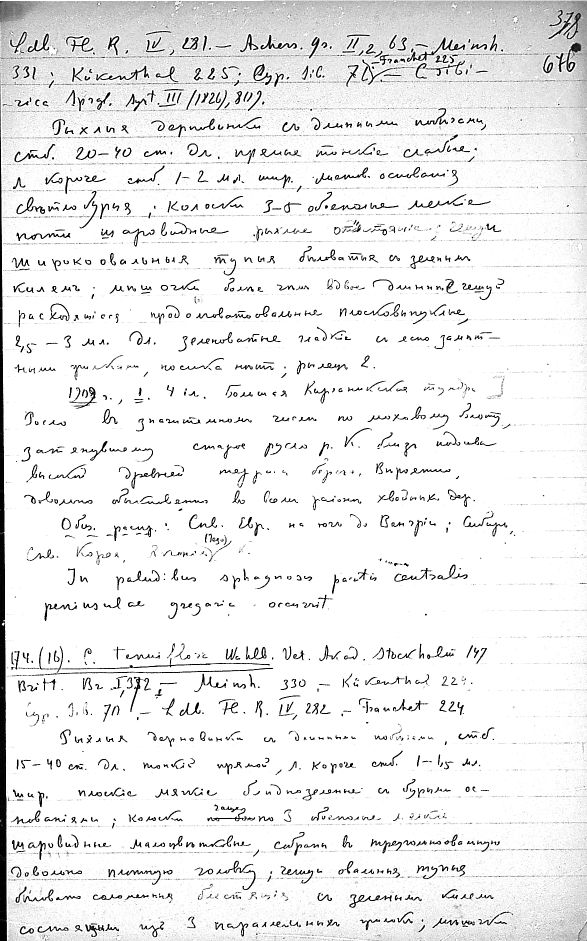 378
676
Ldb. Fl. R. IV, 281. — Aschers. gr. II, 2, 63. — Meinsh.
Franchet 225
331; Kükenthal 225; Cyp. Sib. 71. — C. sibi-
rica Sprgl. Syst. III (1826), 809.
Рыхлыя дерновинки съ длинными побѣгами,
стб. 20—40 см. дл. прямые тонкіе слабые;
л. короче стб. 1—2 мл. шир., листов. основанія
свѣтлобурыя; колоски 3—5 обоеполые мелкіе
почти шаровидные рыхлые; чешуи
широкоовальныя тупыя бѣловатыя съ зеленым
килемъ; мѣшочки болѣе чѣм вдвое длиннѣе чешуй
расходящіеся продолговатоовальные плосковыпуклые,
2,5 — 3 мл. дл. зеленоватые гладкіе съ ясно замѣт-
ными жилками, носика нѣтъ; рылец 2.
1909 г., 4 іл. Большая тундра
Росло въ значительном числѣ по моховому болоту,
затянувшему старое русло р. К. близь подошвы
высокой древней террасы берега. Вѣроятно,
довольно обыкновенна во всем районѣ хвойных дер.
Общ. распр.: Сѣв. Евр. на югъ до Венгріи; Сибирь,
Сѣв. Корея, Японія
In paludibus sphagnosis partis centralis
peninsulae gregaria occurrit.
174. (16). C. tenuiflora Wahlb. Vet. Akad. Stockholm 147
Britt. Br. I, 332. — Meinsh. 330. — Kükenthal 224.
Cyp. Sib. 70. — Ldb. Fl. R. IV, 282. — Franchet 224
Рыхлыя дерновинки съ длинными побѣгами, стб.
15—40 см. дл. тонкій прямой, л. короче стб. 1—1,5 мл.
шир. плоскіе мягкіе блѣднозеленые съ бурыми ос-
нованіями; колоски чаще 3 обоеполые мелкіе
шаровидные малоцвѣтковые, собраны въ треугольноовальную
довольно плотную головку; чешуи овальныя тупыя
бѣловато соломенныя блестящія съ зеленым килем
состоящим изъ 3 параллельных жилокъ; мѣшочки